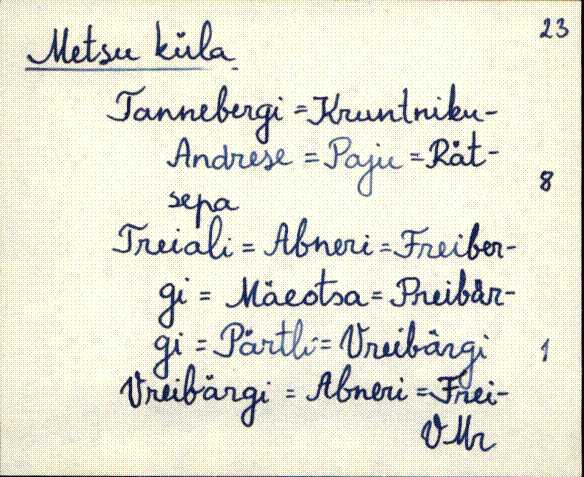 23
Metsu küla
Tannebergi = Kruntniku-
Andrese = Paju = Rät-
sepa
8
Treiali = Abneri = Freiber-
gi = Mäeotsa = Preibär-
gi = Pärtli = Vreibärgi
1
Vreibärgi = Abneri = Frei-
VMr